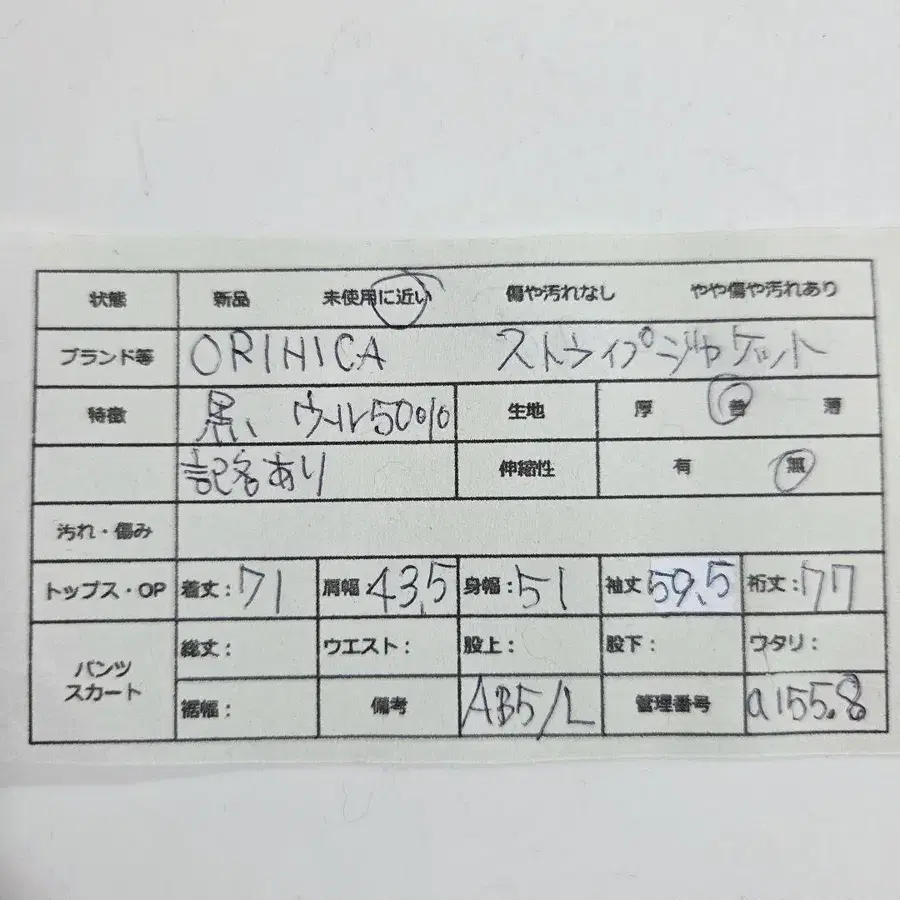 状態 新品 未使用に近い 傷や汚れなし やや傷や汚れあり
ブランド等 ORIHICA ストライプジャケット
特徴 黒 ウール50% 生地 厚 普 薄
記名あり 伸縮性 有 無
汚れ・傷み
トップス・OP 着丈:71 肩幅:43.5 身幅:51 袖丈59.5 裄丈:77
パンツ スカート 総丈: ウエスト: 股上: 股下: ワタリ:
裾幅: 備考 AB5/L 管理番号 a155.8